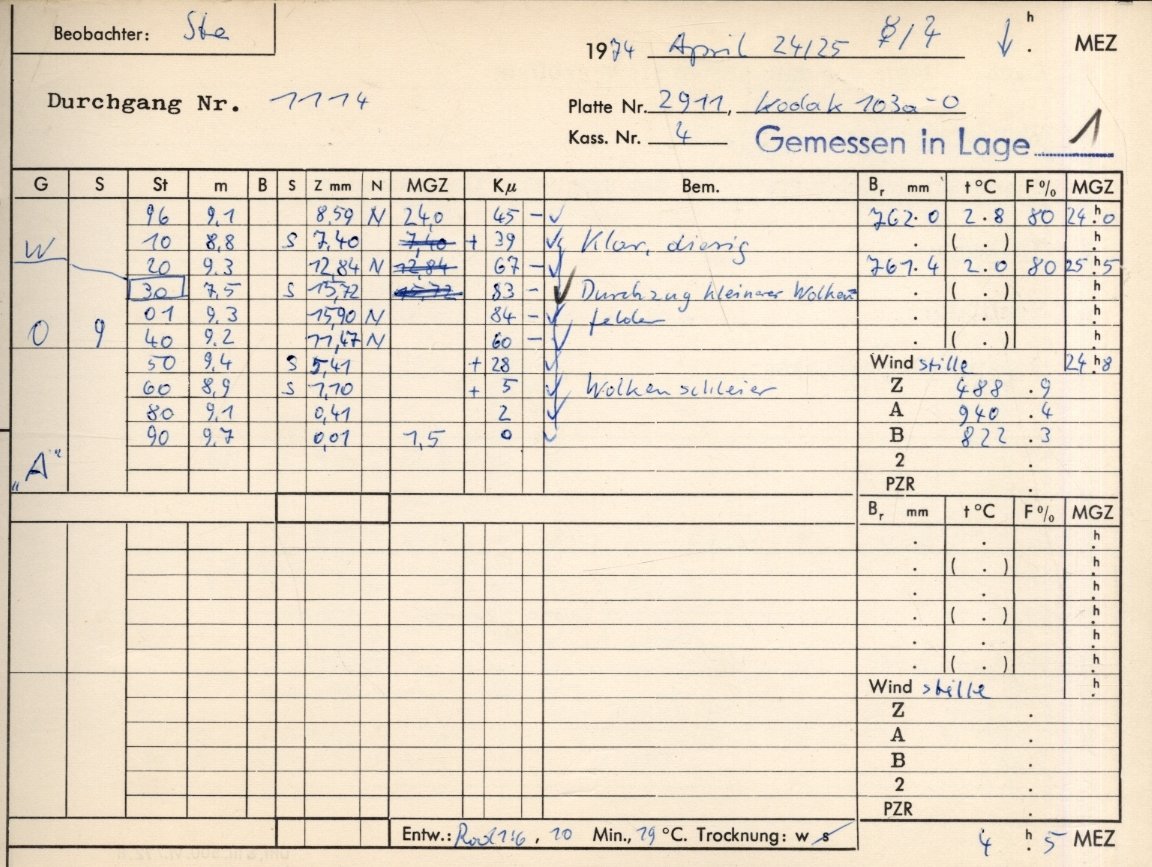 Beobachter: Ste
1974 April 24/25 ↓ h . MEZ
Durchgang Nr. 1114
Platte Nr. 2911, Kodak 103a-O
Kass. Nr. 4
Gemessen in Lage 1
G S St m B S Z mm N MGZ Kμ Bem. Br mm t °C F % MGZ
96 9,1 8,59 N 24,0 45 - ✓ 762.0 2.8 80 24h.0
W 10 8,8 S 7,40 7,40 + 39 ✓ Klar, diesig . ( . ) h.
20 9.3 12,84 N 12,84 67 - ✓ 761.4 2.0 80 25h.5
30 7,5 S 15,72 15,72 83 - ✓ Durchzug kleinerer Wolken . ( . ) h.
01 9.3 15,90 N 84 - ✓ felder . . h.
O 9 40 9.2 11,47 N 60 - ✓ . ( . ) h.
50 9,4 S 5,41 + 28 ✓ Wind stille 24h.8
60 8,9 S 1,10 + 5 ✓ Wolkenschleier Z 488 . 9
80 9,1 0,41 2 ✓ A 940 . 4
90 9,7 0,01 1,5 0 ✓ B 822 . 3
„A“ 2 .
PZR .
Br mm t °C F % MGZ
. . h.
. ( . ) h.
. . h.
. ( . ) h.
. . h.
. ( . ) h.
Wind stille h.
Z .
A .
B .
2 .
PZR .
Entw.: Rod 1:6, 10 Min., 19 °C. Trocknung: w s
4 h. 5 MEZ